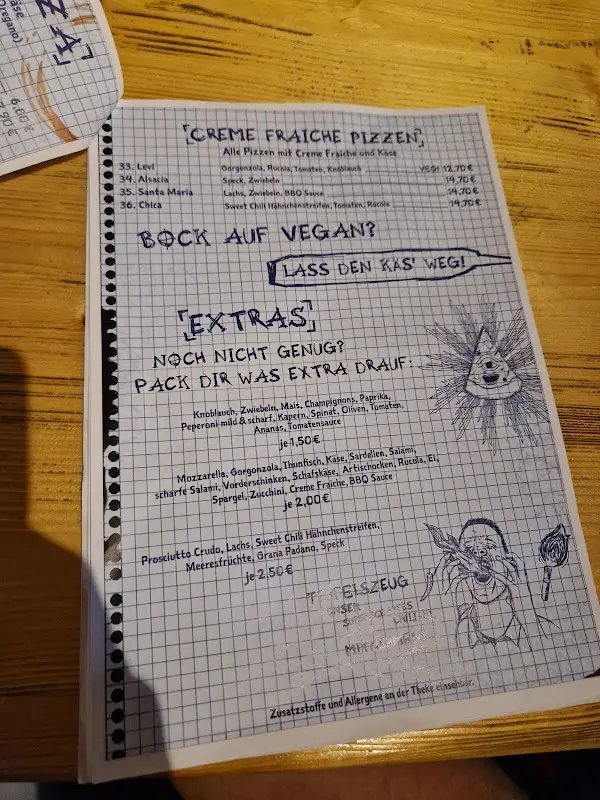 Käse
Oregano)
ZA
6,00€
7,90€
CREME FRAICHE PIZZEN
Alle Pizzen mit Creme Fraiche und Käse
33. Levi Gorgonzola, Rucola, Tomaten, Knoblauch VEG! 12,70€
34. Alsacia Speck, Zwiebeln 14,70€
35. Santa Maria Lachs, Zwiebeln, BBQ Sauce 14,70€
36. Chica Sweet Chili Hähnchenstreifen, Tomaten, Rucola 14,70€
BOCK AUF VEGAN?
LASS DEN KÄS' WEG!
EXTRAS
NOCH NICHT GENUG?
PACK DIR WAS EXTRA DRAUF:
Knoblauch, Zwiebeln, Mais, Champignons, Paprika,
Peperoni mild & scharf, Kapern, Spinat, Oliven, Tomaten,
Ananas, Tomatensauce
je 1,50€
Mozzarella, Gorgonzola, Thunfisch, Käse, Sardellen, Salami,
scharfe Salami, Vorderschinken, Schafskäse, Artischocken, Rucola, Ei,
Spargel, Zucchini, Creme Fraiche, BBQ Sauce
je 2,00€
Prosciutto Crudo, Lachs, Sweet Chili Hähnchenstreifen,
Meeresfrüchte, Grana Padano, Speck
je 2,50€
TEUFELSZEUG
UNSER
Zusatzstoffe und Allergene an der Theke einsehbar.